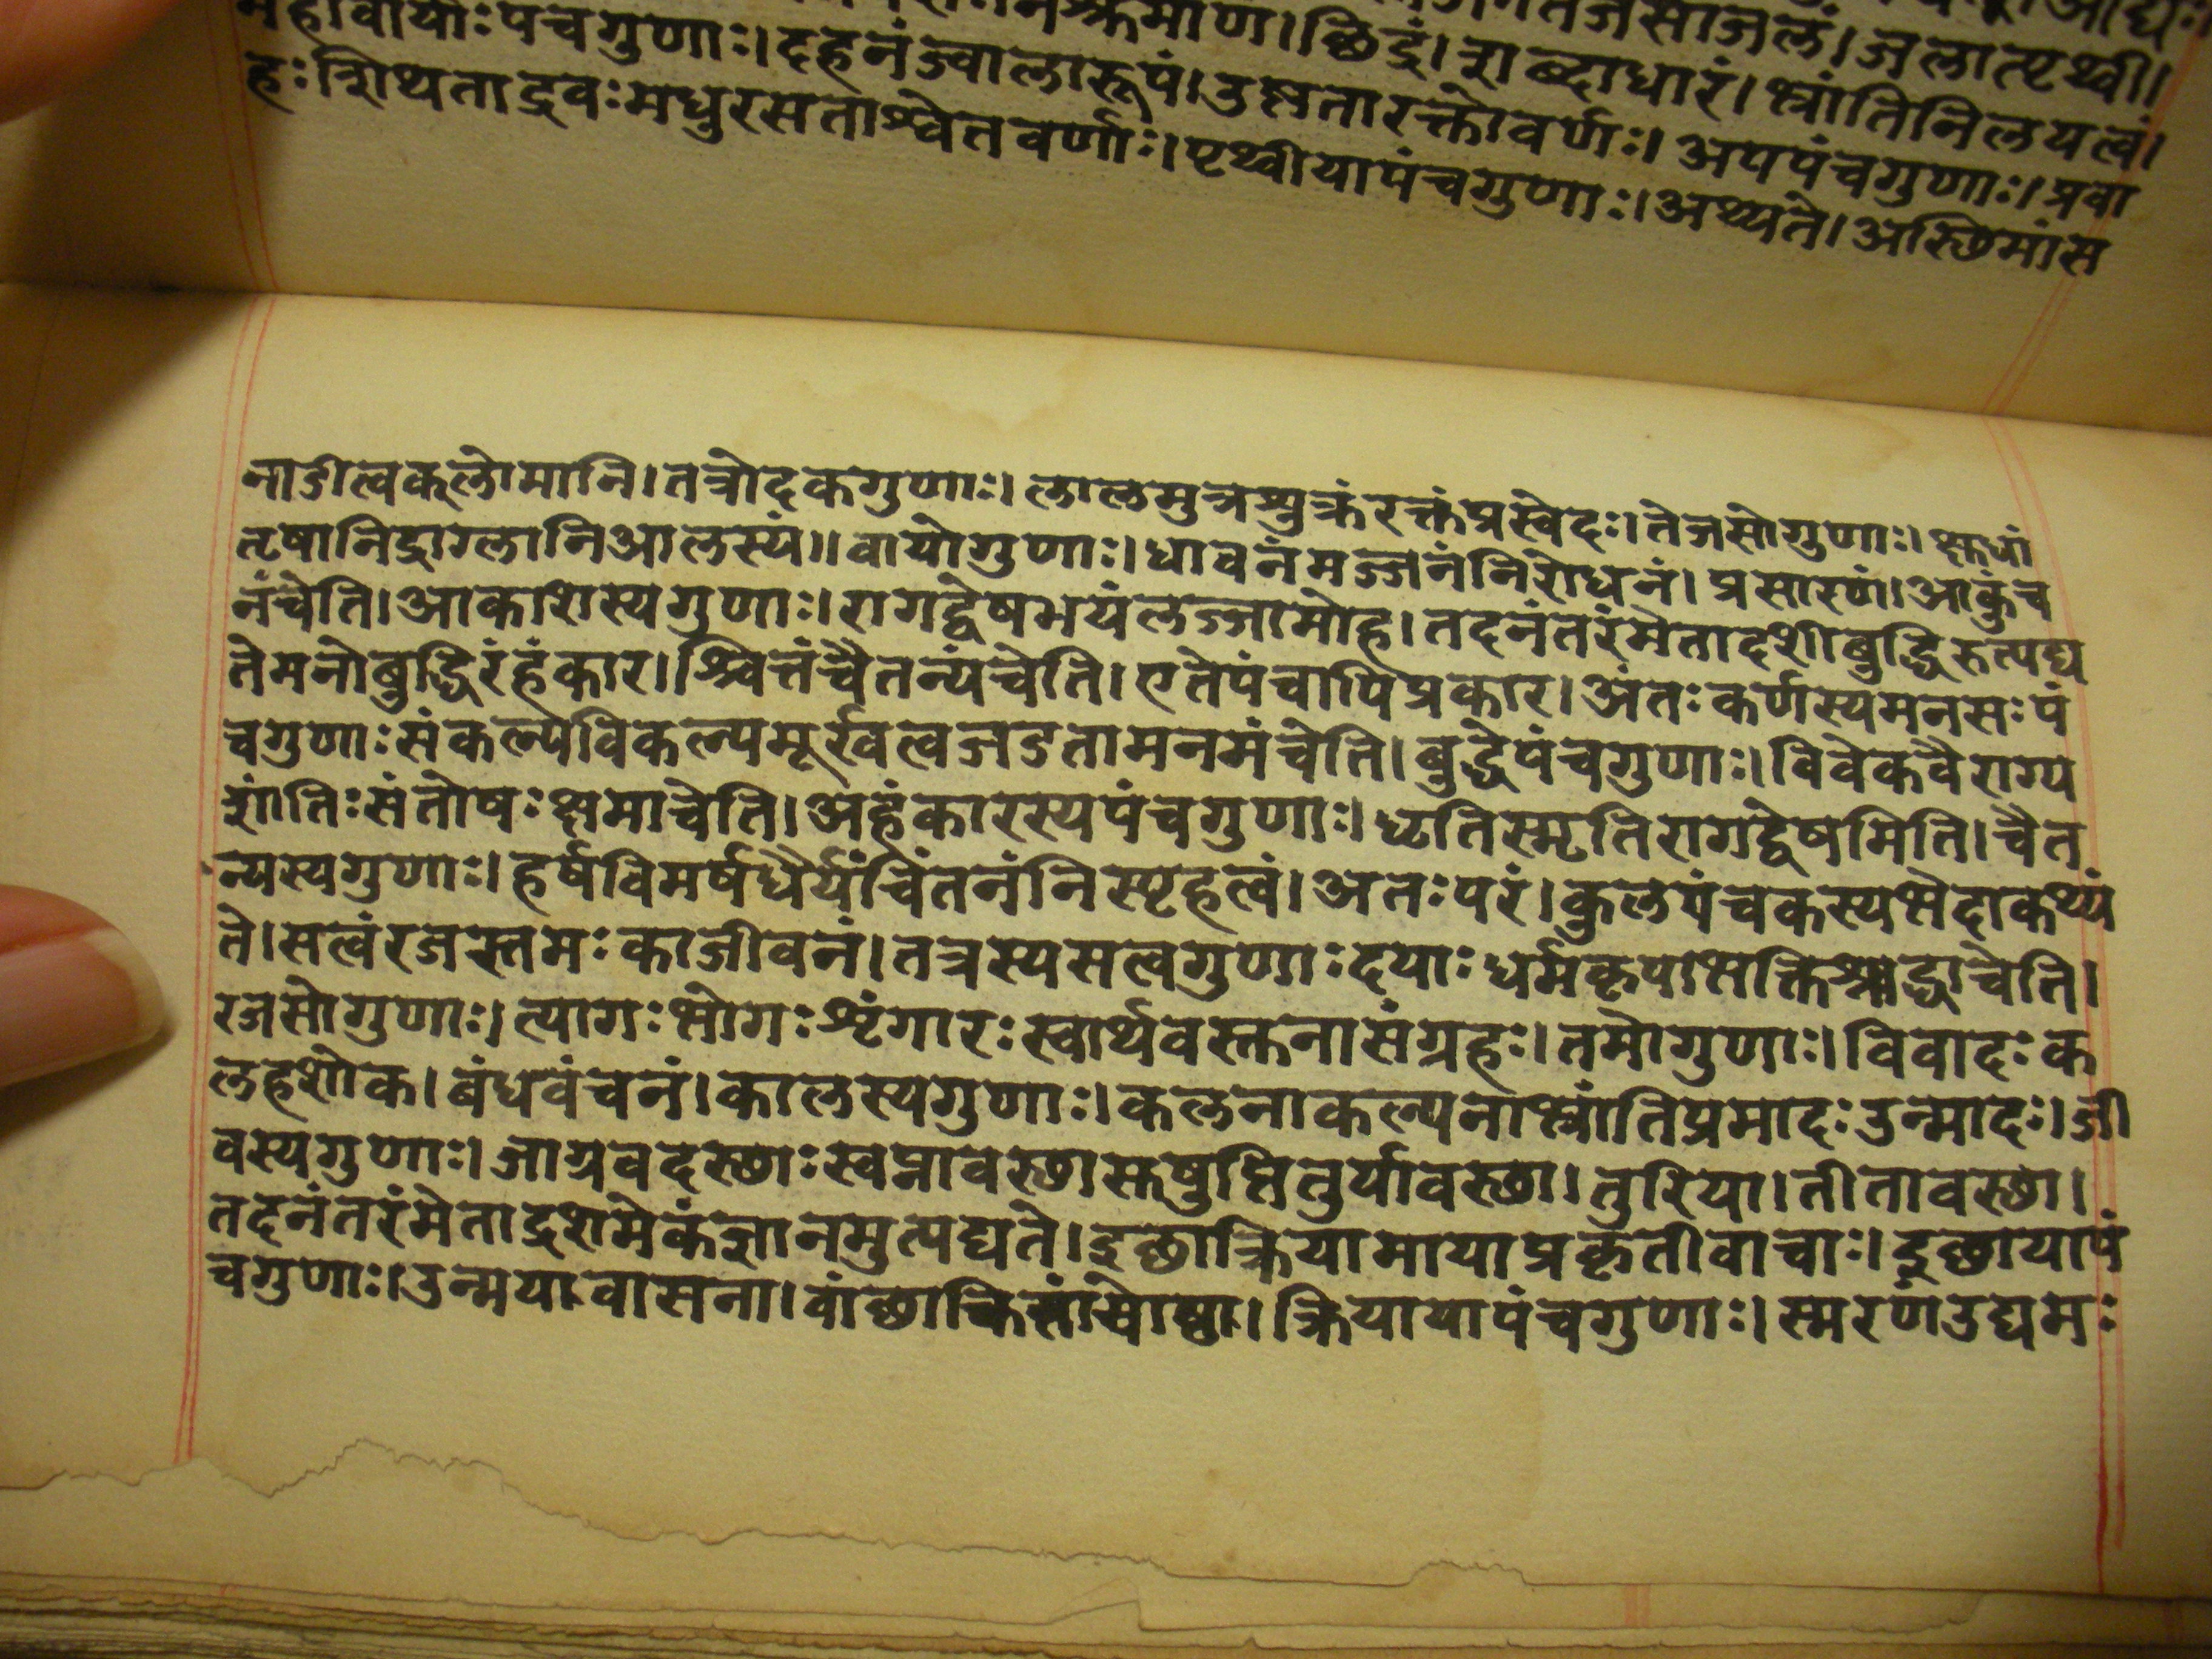 महावायोः पंचगुणाः। दहनं ज्वालारूपं। उष्मतारक्तोवर्णः। अपपंचगुणाः। प्रवा
हः शिथताद्रवः मधुरसताश्वेतवर्णाः। पृथ्वीयापंचगुणाः। अथ्यते। अस्छिमांस
नाडीत्वकलोमानि। तत्रोदकगुणाः। लालमुत्रश्युक्रंरक्तंप्रस्वेदः। तेजसोगुणाः।
तृषानिद्राग्लानिआलस्यं॥ वायोगुणाः। धावनंमज्जनंनिरोधनं। प्रसारणं। आकुंच
नंचेति। आकाशस्यगुणाः। रागद्वेषभयंलज्जामोह। तदनंतरंमैतादशीबुद्धिरुत्पद्य
तेमनोबुद्धिरंहंकार। श्चित्तंच्चैतन्यंचेति। एतेपंचापिप्रकार। अंतःकर्णस्यमनसःपं
चगुणाःसंकल्पविकल्पमूर्खत्वजडतामनमंचेति। बुद्धेपंचगुणाः। विवेकवैराग्य
शांतिःसंतोषःक्षमाचेति। अहंकारस्यपंचगुणाः। धृतिस्मृतिरागद्वेषमिति। चैत
न्यस्यगुणाः। हर्षविमर्षधैर्यंचिंतनंनिस्पृहत्वं। अतःपरं। कुलपंचकस्यभेदाकथ्यं
ते। सत्वंरजस्तमःकाजीवनं। तत्रस्यसत्वगुणाःदयाःधर्मकृपाभक्तिश्राद्धाचेति।
रजसोगुणाः। त्यागःभोगःशृंगारःस्वार्थवस्तनासंग्रहः। तमोगुणाः। विवादःक
लहशोक। बंधवंचनं। कालस्यगुणाः। कलनाकल्पनाभ्रांतिप्रमादःउन्मादः। जी
वस्यगुणाः। जाग्रवदस्छाःस्वप्नावस्छासुषुप्तितुर्यावस्छा। तुरिया। तीतावस्छा।
तदनंतरंमैताद्रशमेकंज्ञानमुत्पद्यते। इछाक्रियामायाप्रकृतीवाचाः। इछायापं
चगुणाः। उन्मयावासना। वांछा क्रियायापंचगुणाः। स्मरणंउद्यमः